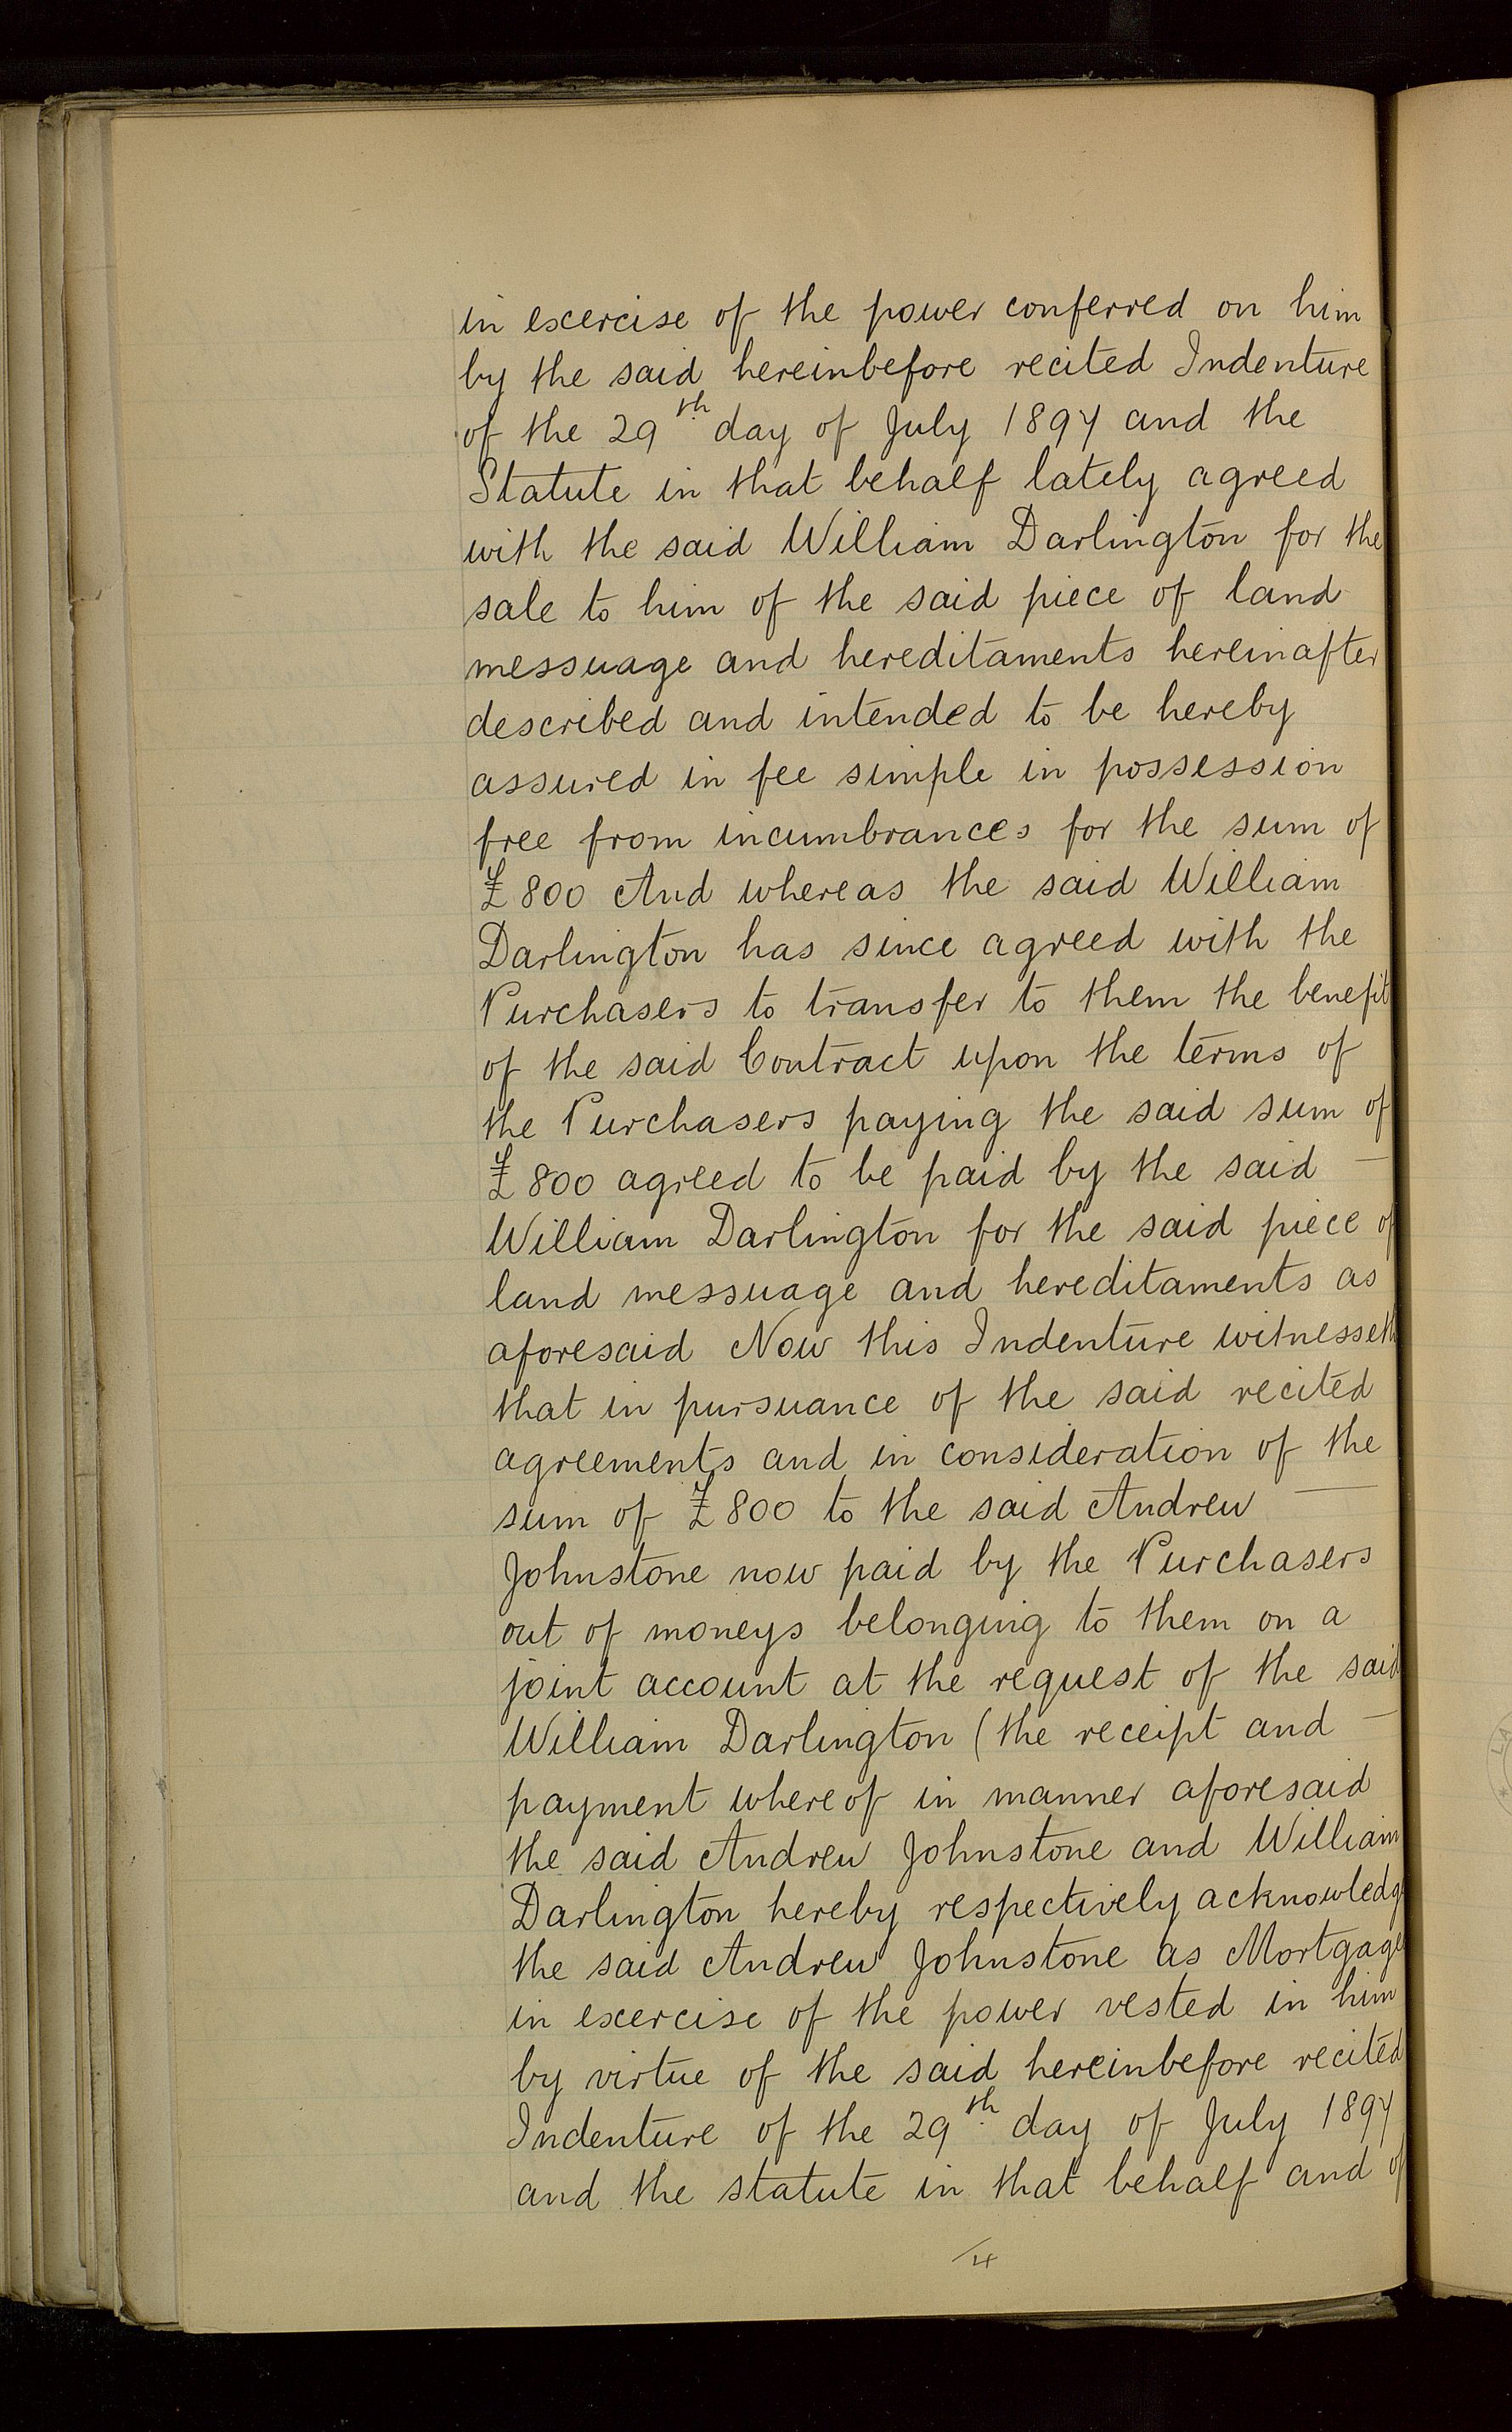 in exercise of the power conferred on him
by the said hereinbefore recited Indenture
of the 29th day of July 1897 and the
Statute in that behalf lately agreed
with the said William Darlington for the
sale to him of the said piece of land
messuage and hereditaments hereinafter
described and intended to be hereby
assured in fee simple in possession
free from incumbrances for the sum of
£800 And whereas the said William
Darlington has since agreed with the
Purchasers to transfer to them the benefit
of the said Contract upon the terms of
the Purchasers paying the said sum of
£800 agreed to be paid by the said —
William Darlington for the said piece of
land messuage and hereditaments as
aforesaid Now this Indenture witnesseth
that in pursuance of the said recited
agreements and in consideration of the
sum of £800 to the said Andrew —
Johnstone now paid by the Purchasers
out of moneys belonging to them on a
joint account at the request of the said
William Darlington (the receipt and —
payment whereof in manner aforesaid
the said Andrew Johnstone and William
Darlington hereby respectively acknowledge
the said Andrew Johnstone as Mortgagee
in exercise of the power vested in him
by virtue of the said hereinbefore recited
Indenture of the 29th day of July 1897
and the statute in that behalf and of
/4